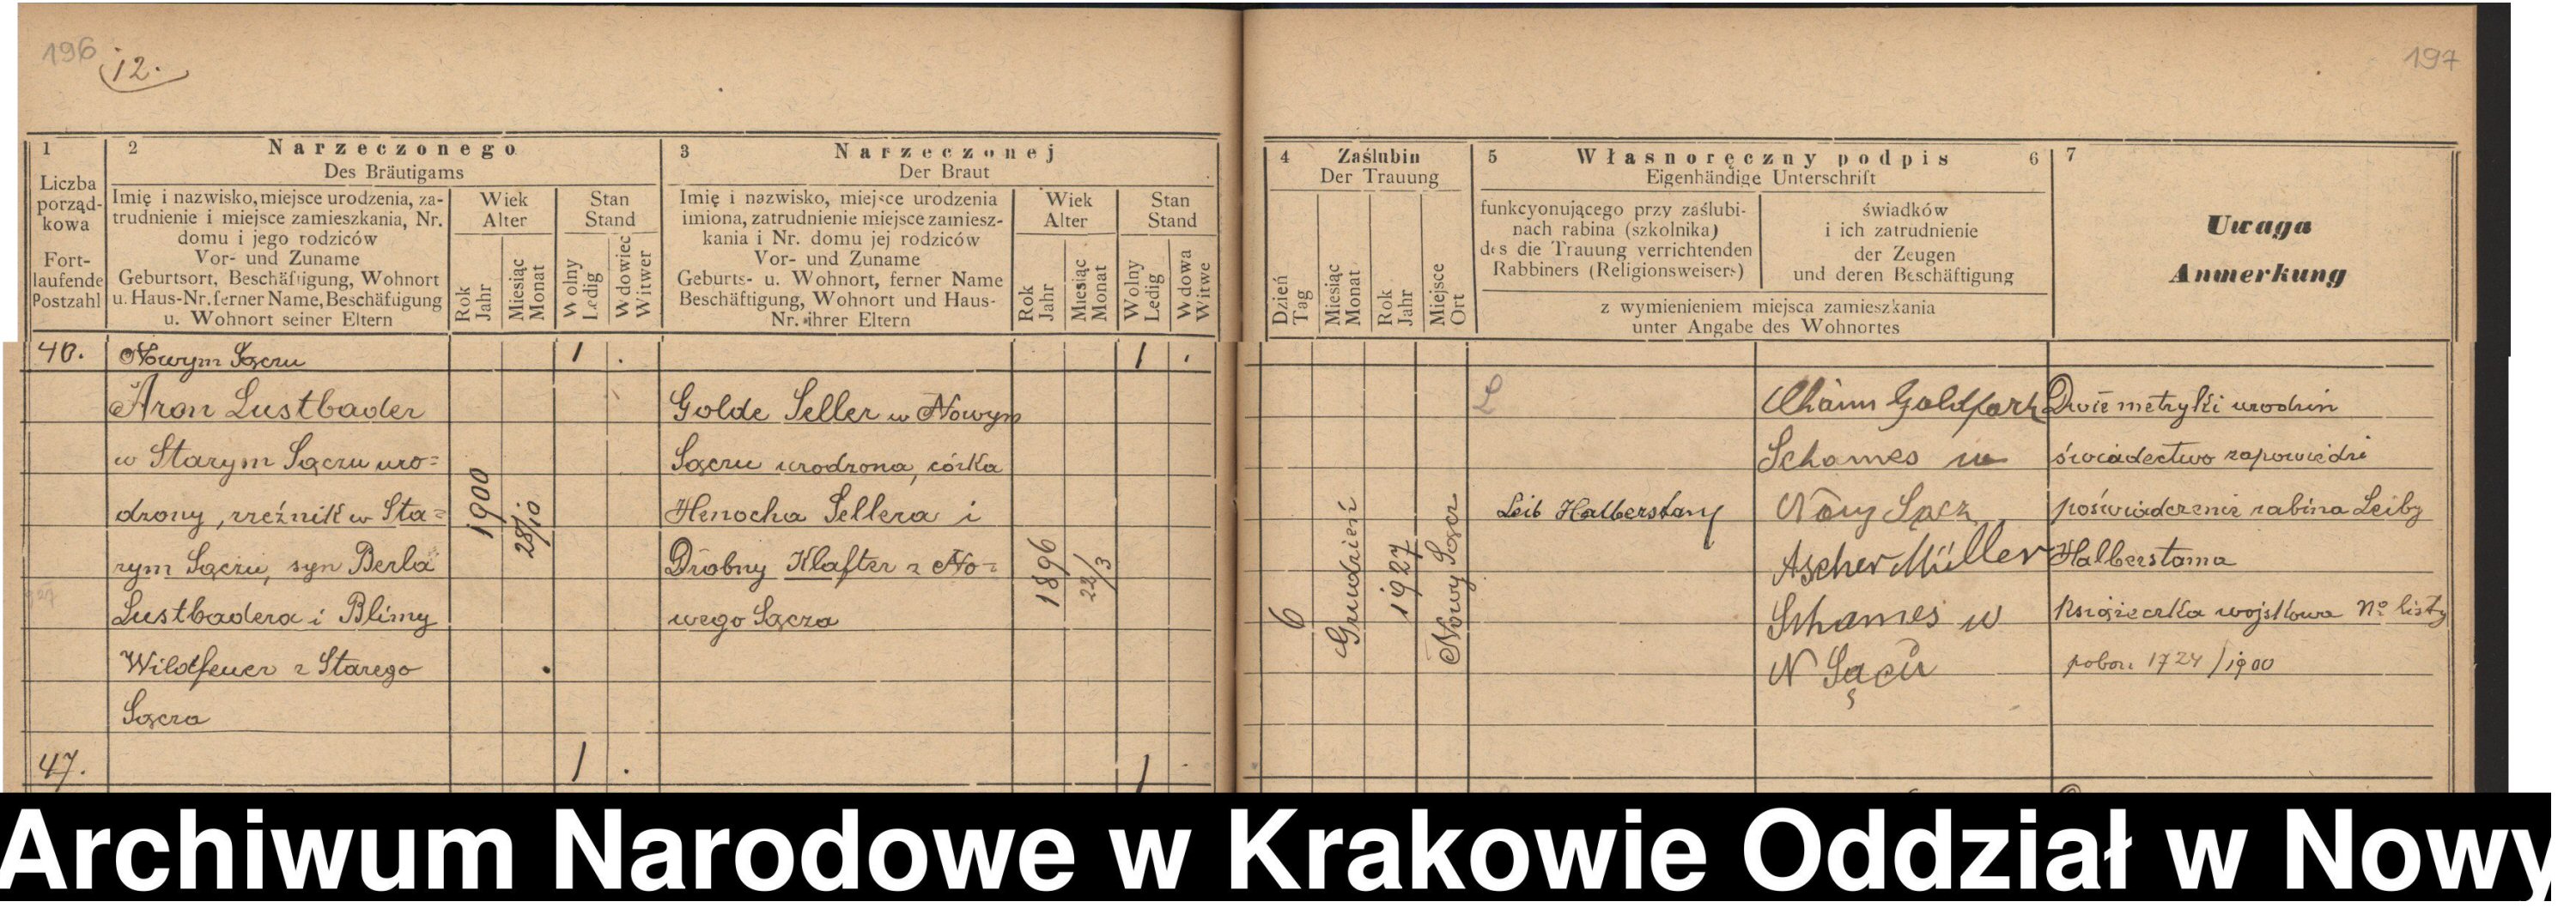 196
12.
197
1
Liczba
porząd-
kowa
Fort-
laufende
Postzahl
2 Narzeczonego
Des Bräutigams
Imię i nazwisko, miejsce urodzenia, za-
trudnienie i miejsce zamieszkania, Nr.
domu i jego rodziców
Vor- und Zuname
Geburtsort, Beschäftigung, Wohnort
u. Haus-Nr. ferner Name, Beschäftigung
u. Wohnort seiner Eltern
Wiek
Alter
Rok
Jahr
Miesiąc
Monat
Stan
Stand
Wolny
Ledig
Wdowiec
Witwer
3 Narzeczonej
Der Braut
Imię i nazwisko, miejsce urodzenia
imiona, zatrudnienie miejsce zamiesz-
kania i Nr. domu jej rodziców
Vor- und Zuname
Geburts- u. Wohnort, ferner Name
Beschäftigung, Wohnort und Haus-
Nr. ihrer Eltern
Wiek
Alter
Rok
Jahr
Miesiąc
Monat
Stan
Stand
Wolny
Ledig
Wdowa
Witwe
4 Zaślubin
Der Trauung
Dzień
Tag
Miesiąc
Monat
Rok
Jahr
Miejsce
Ort
5 Własnoręczny podpis 6
Eigenhändige Unterschrift
funkcyonującego przy zaślubi-
nach rabina (szkolnika)
des die Trauung verrichtenden
Rabbiners (Religionsweisers)
świadków
i ich zatrudnienie
der Zeugen
und deren Beschäftigung
z wymienieniem miejsca zamieszkania
unter Angabe des Wohnortes
7
Uwaga
Anmerkung
46. Nowym Sączu 1 . 1 .
Aron Lustbader
w Starym Sączu uro=
drony, rzeźnik w Sta=
rym Sączu, syn Berla
Lustbadera i Blimy
Wildfeuer z Starego
Sącza
1900
28/10
Golde Seller w Nowym
Sączu urodzona, córka
Henocha Sellera i
Drobny Klafter z No=
wego Sącza
1896
22/3
6
Grudzień
1927
Nowy Sącz
L
Leib Halberstam
Chaim Goldfarb
Schames w
Nowy Sącz
Ascher Müller
Schames w
N Sącu
Dwie metryki urodzin
świadectwo zapowiedzi
poświadczenie rabina Leiby
Halberstama
Książeczka wojskowa No listy
pobor. 1724/1900
47. 1 . 1 .
Archiwum Narodowe w Krakowie Oddział w Nowy